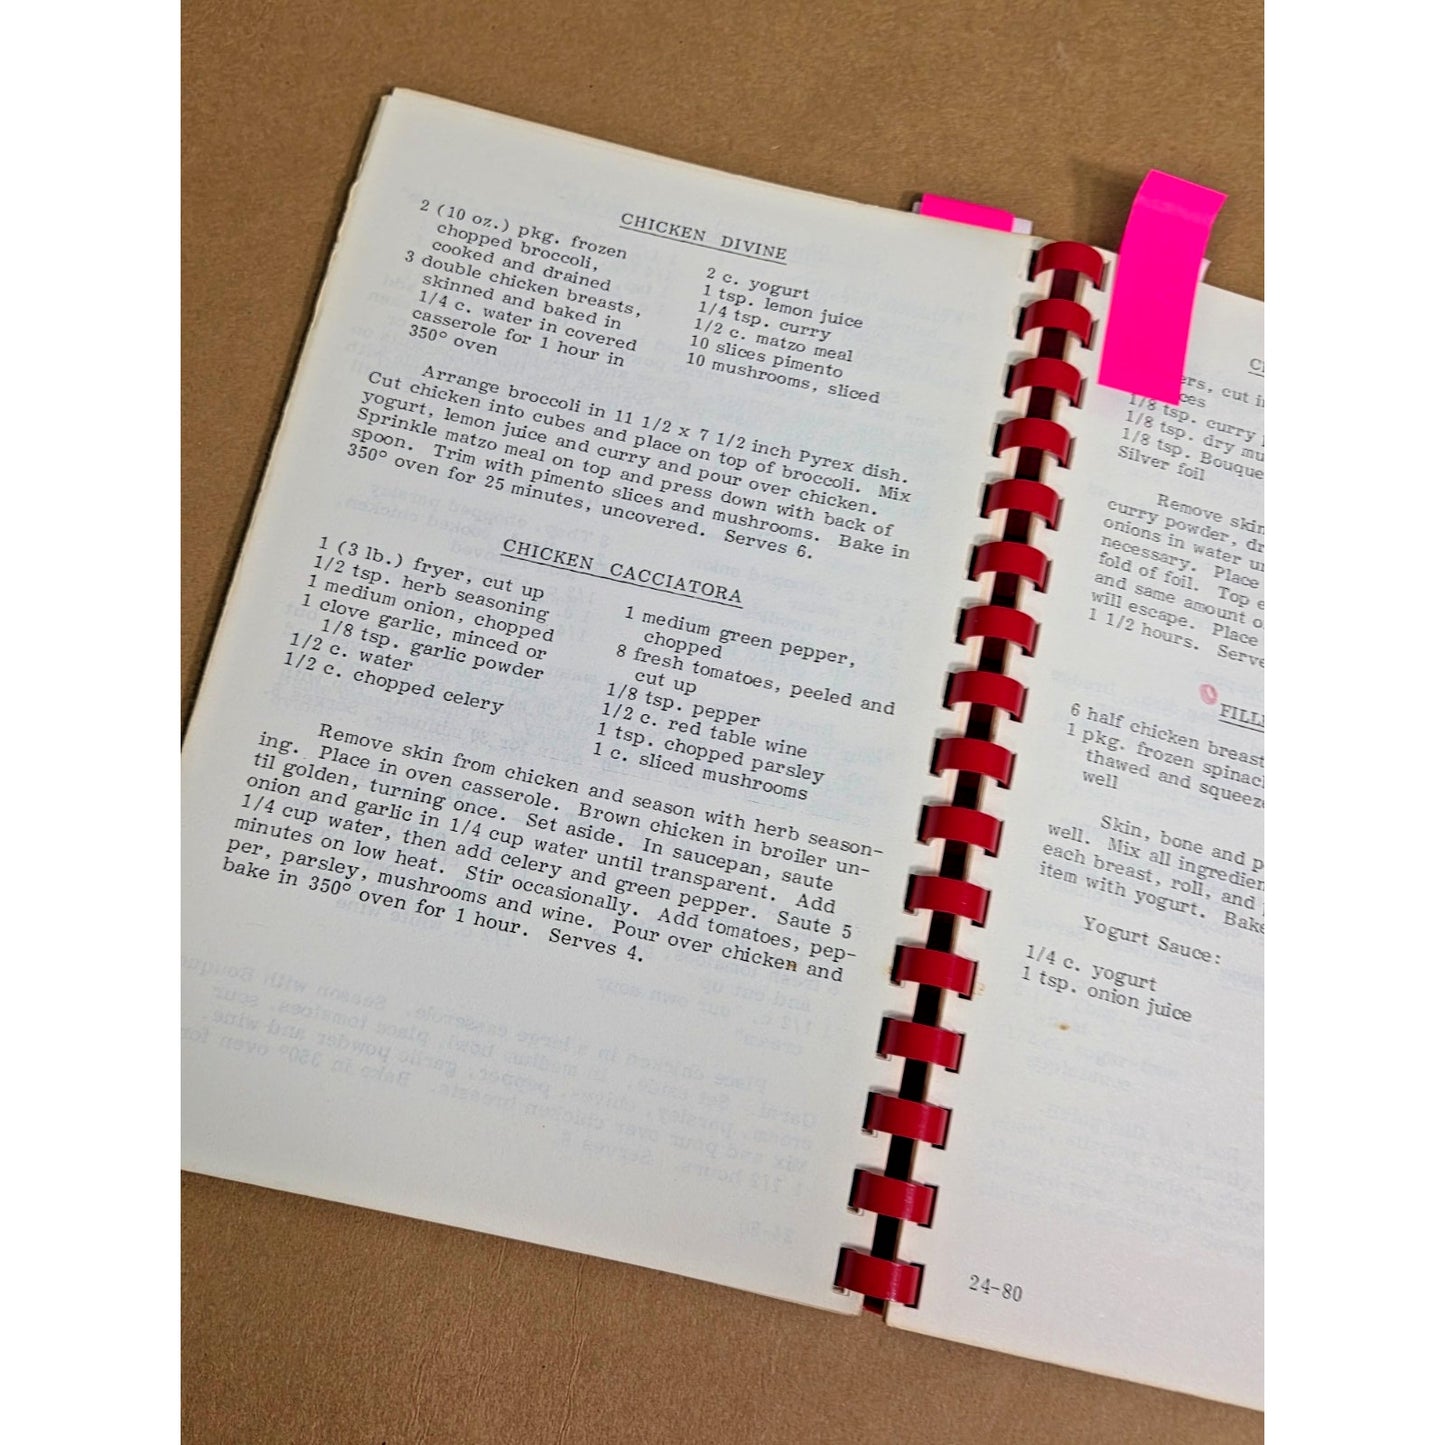 CHICKEN DIVINE
2 (10 oz.) pkg. frozen
chopped broccoli,
cooked and drained
3 double chicken breasts,
skinned and baked in
1/4 c. water in covered
casserole for 1 hour in
350° oven
2 c. yogurt
1 tsp. lemon juice
1/4 tsp. curry
1/2 c. matzo meal
10 slices pimento
10 mushrooms, sliced
Arrange broccoli in 11 1/2 x 7 1/2 inch Pyrex dish.
Cut chicken into cubes and place on top of broccoli. Mix
yogurt, lemon juice and curry and pour over chicken.
Sprinkle matzo meal on top and press down with back of
spoon. Trim with pimento slices and mushrooms. Bake in
350° oven for 25 minutes, uncovered. Serves 6.
CHICKEN CACCIATORA
1 (3 lb.) fryer, cut up
1/2 tsp. herb seasoning
1 medium onion, chopped
1 clove garlic, minced or
1/8 tsp. garlic powder
1/2 c. water
1/2 c. chopped celery
1 medium green pepper,
chopped
8 fresh tomatoes, peeled and
cut up
1/8 tsp. pepper
1/2 c. red table wine
1 tsp. chopped parsley
1 c. sliced mushrooms
Remove skin from chicken and season with herb season-
ing. Place in oven casserole. Brown chicken in broiler un-
til golden, turning once. Set aside. In saucepan, saute
onion and garlic in 1/4 cup water until transparent. Add
1/4 cup water, then add celery and green pepper. Saute 5
minutes on low heat. Stir occasionally. Add tomatoes, pep-
per, parsley, mushrooms and wine. Pour over chicken and
bake in 350° oven for 1 hour. Serves 4.
cut
1/8 tsp. curry
1/8 tsp. dry
1/8 tsp.
Silver foil
Remove skin
curry powder,
onions in water
necessary. Place
fold of foil. Top
and same amount
will escape. Place
1 1/2 hours.
6 half chicken
1 pkg. frozen
thawed and
well
Skin, bone and
well. Mix all
each breast, roll, and
item with yogurt.
Yogurt Sauce:
1/4 c. yogurt
1 tsp. onion juice
24-80